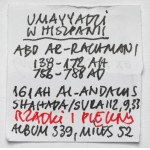 UMAYYADZI
W HISZPANII
ABD AR-RACHMAN I
138-172 AH
756-788 AD
161 AH AL-ANDALUS
SHAHADA/SURA 112, 9,33
RZADKI I PIĘKNY
ALBUM 339, MILES 52